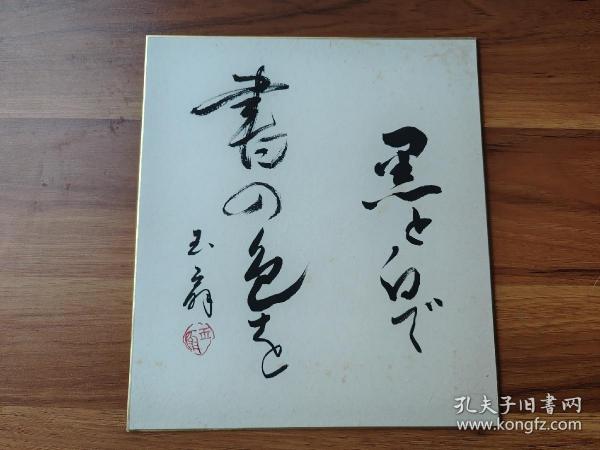 黒と白で
書の色を
孔夫子旧書网
www.kongfz.com